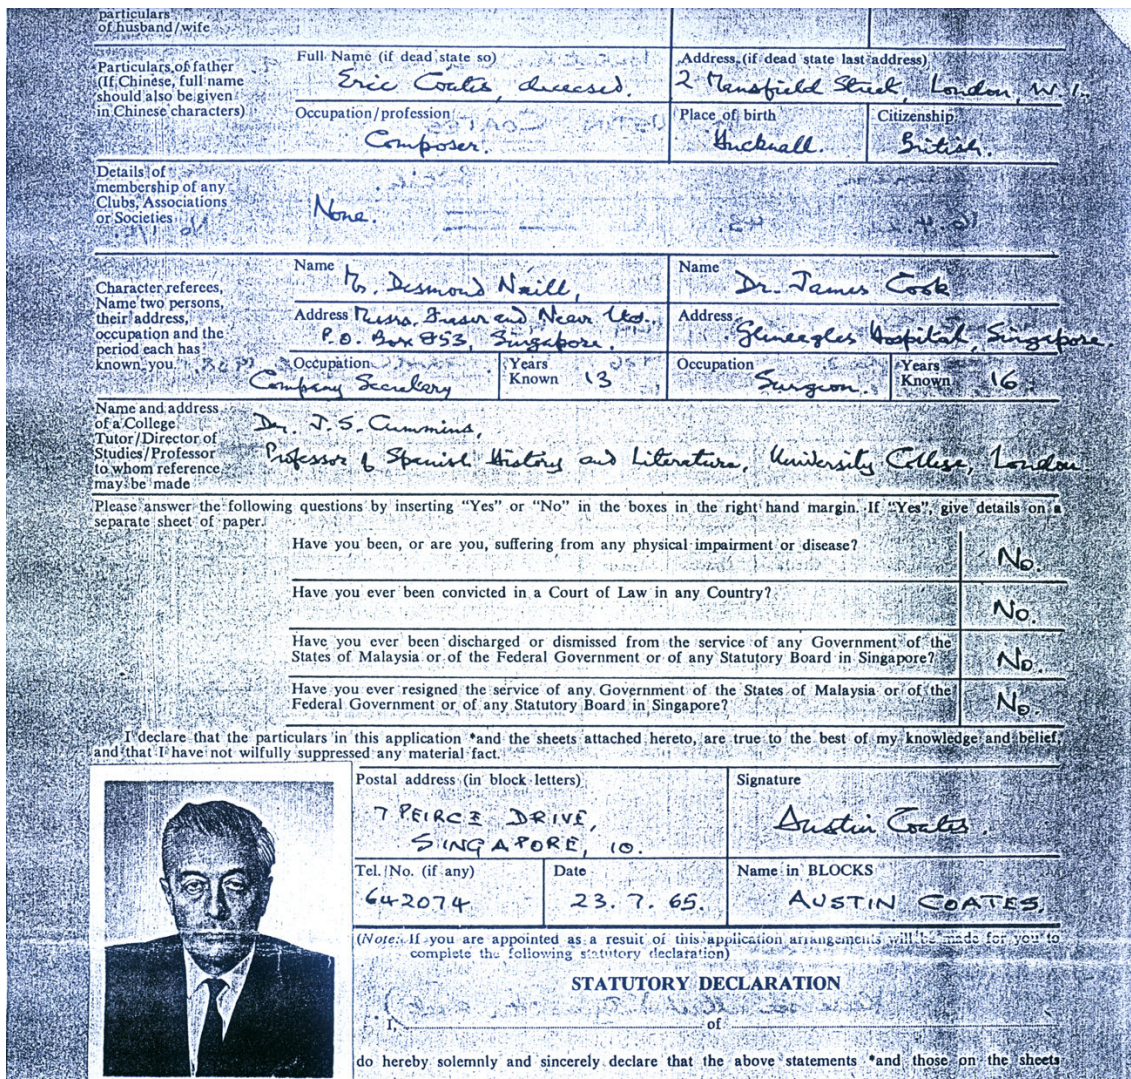 particulars
of husband/wife
Particulars of father
(If Chinese, full name
should also be given
in Chinese characters)
Full Name (if dead state so)
Eric Coates, deceased.
Address (if dead state last address)
2 Mansfield Street, London, W 1.
Occupation/profession
Composer.
Place of birth
Hucknall.
Citizenship
British.
Details of
membership of any
Clubs, Associations
or Societies
None.
Character referees,
Name two persons,
their address,
occupation and the
period each has
known you.
Name
Mr. Desmond Neill,
Name
Dr. James Cook
Address Messrs. Fraser and Neave Ltd.
P.O. Box 853, Singapore.
Address
Gleneagles Hospital, Singapore.
Occupation
Company Secretary
Years
Known 13
Occupation
Surgeon.
Years
Known 16
Name and address
of a College
Tutor/Director of
Studies/Professor
to whom reference
may be made
Dr. J.S. Cummins,
Professor of Spanish History and Literature, University College, London
Please answer the following questions by inserting "Yes" or "No" in the boxes in the right hand margin. If "Yes", give details on a
separate sheet of paper.
Have you been, or are you, suffering from any physical impairment or disease?
No.
Have you ever been convicted in a Court of Law in any Country?
No.
Have you ever been discharged or dismissed from the service of any Government of the
States of Malaysia or of the Federal Government or of any Statutory Board in Singapore?
No.
Have you ever resigned the service of any Government of the States of Malaysia or of the
Federal Government or of any Statutory Board in Singapore?
No.
I declare that the particulars in this application *and the sheets attached hereto, are true to the best of my knowledge and belief,
and that I have not wilfully suppressed any material fact.
Postal address (in block letters)
7 PEIRCE DRIVE,
SINGAPORE, 10.
Signature
Austin Coates.
Tel. No. (if any)
642074
Date
23. 7. 65.
Name in BLOCKS
AUSTIN COATES.
(Note: If you are appointed as a result of this application arrangements will be made for you to
complete the following statutory declaration)
STATUTORY DECLARATION
I, of
do hereby solemnly and sincerely declare that the above statements *and those on the sheets